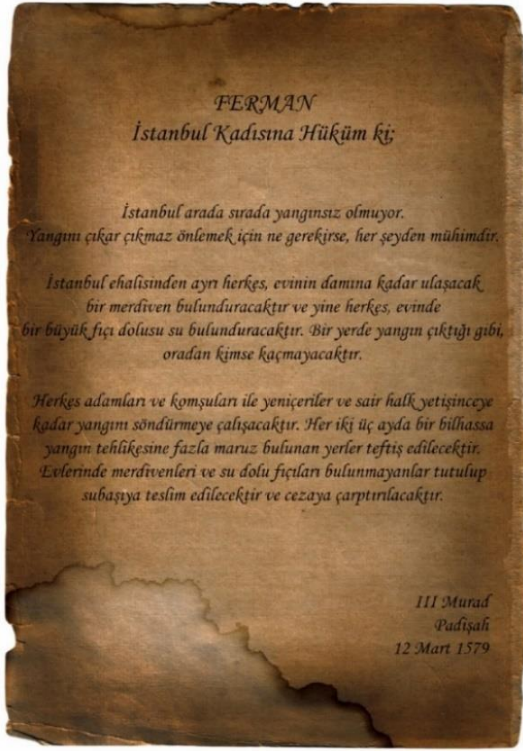 FERMAN
İstanbul Kadısına Hüküm ki;
İstanbul arada sırada yangınsız olmuyor.
Yangını çıkar çıkmaz önlemek için ne gerekirse, her şeyden mühimdir.
İstanbul ehalisinden ayrı herkes, evinin damına kadar ulaşacak
bir merdiven bulunduracaktır ve yine herkes, evinde
bir büyük fıçı dolusu su bulunduracaktır. Bir yerde yangın çıktığı gibi,
oradan kimse kaçmayacaktır.
Herkes adamları ve komşuları ile yeniçeriler ve sair halk yetişinceye
kadar yangını söndürmeye çalışacaktır. Her iki üç ayda bir bilhassa
yangın tehlikesine fazla maruz bulunan yerler teftiş edilecektir.
Evlerinde merdivenleri ve su dolu fıçıları bulunmayanlar tutulup
subaşıya teslim edilecektir ve cezaya çarptırılacaktır.
III Murad
Padişah
12 Mart 1579